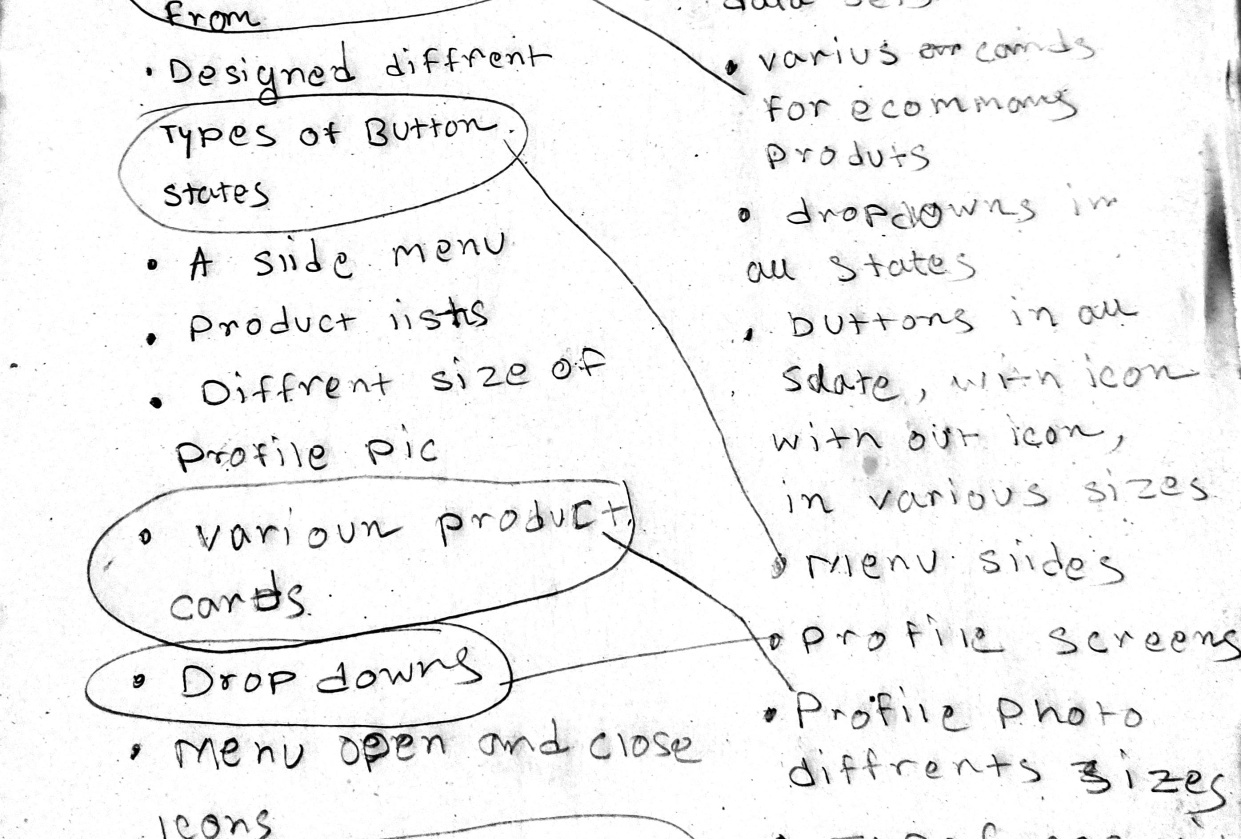 From
• Designed diffrent
Types of Button
states
• A slide menu
• Product lists
• Diffrent size of
Profile pic
• varioun product
cards.
• Drop downs
• Menu open and close
icons
• varius cards
for ecommans
produts
• dropdowns in
all states
• buttons in all
sdate, with icon
with out icon,
in various sizes
• Menu slides
• profile screens
• Profile photo
diffrents sizes